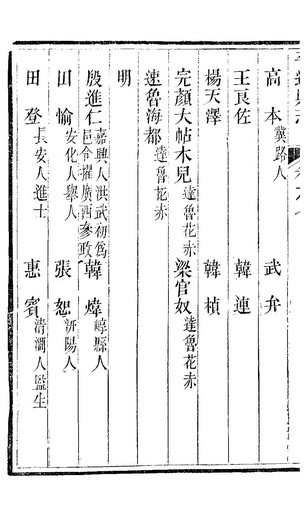 高本冀路人　武弁
王良佐　韓連
楊天澤　韓楨
完顏大帖木兒達魯花赤　梁官奴達魯花赤
速魯海都達魯花赤
明
殷進仁嘉興人洪武初爲邑令擢廣西參政　韓煒嶧縣人
田愉安化人舉人　張恕沂陽人
田登長安人進士　惠賓清澗人監生